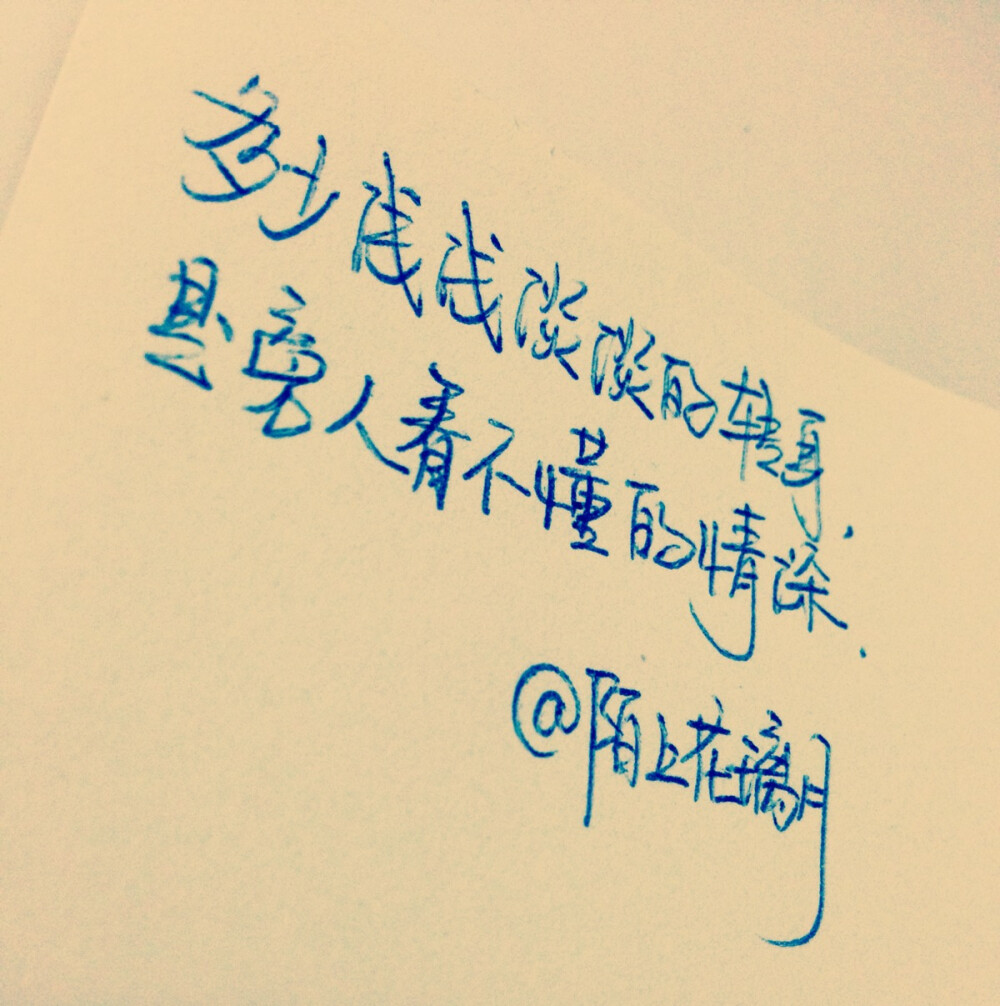 多少浅浅淡淡的转身.
是旁人看不懂的情深.
@陌上花璃月